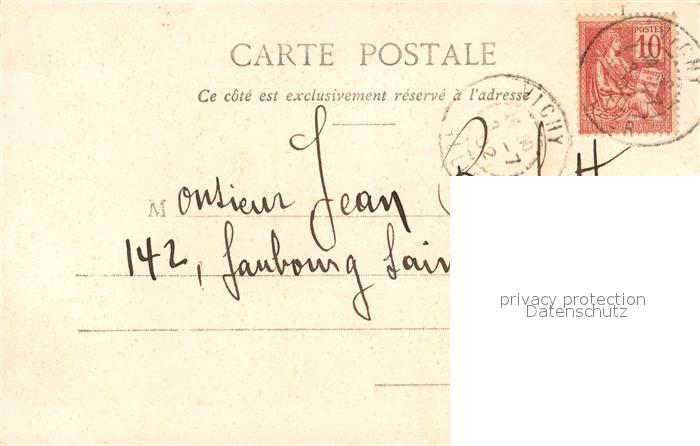 CARTE POSTALE
Ce côté est exclusivement réservé à l'adresse
POSTES
10
REPUBLIQUE FRANÇAISE
VICHY
VICHY
Monsieur Jean
142, Faubourg Sain
privacy protection
Datenschutz